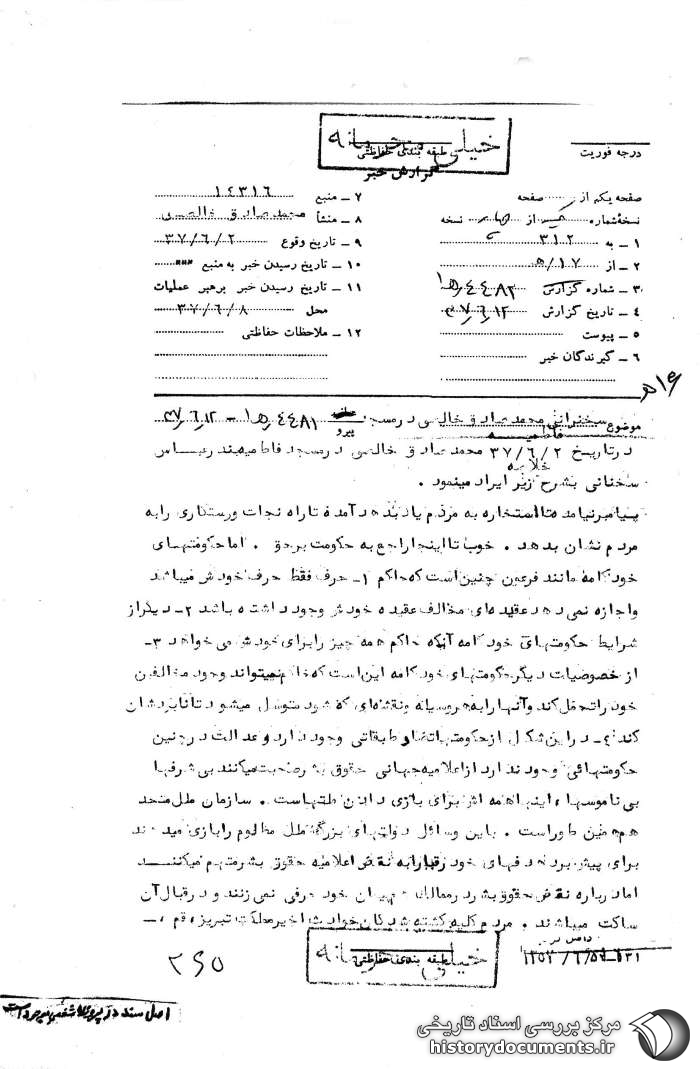 خیلی محرمانه
طبقه بندی حفاظتی
گزارش خبر
درجه فوریت
صفحه یکم از صفحه
نسخهٔ شماره یک از چهار نسخه
۱ـ به ۳۱۲
۲ـ از ۱۷/ه
۳ـ شماره گزارش ۴۴۸۲
۴ـ تاریخ گزارش ۳۷/۶/۱۲
۵ـ پیوست
۶ـ گیرندگان خبر
۷ـ منبع ۱۴۳۱۶
۸ـ منشأ محمد صادق خالصی
۹ـ تاریخ وقوع ۳۷/۶/۲
۱۰ـ تاریخ رسیدن خبر به منبع ***
۱۱ـ تاریخ رسیدن خبر برهبر عملیات
محل ۳۷/۶/۸
۱۲ـ ملاحظات حفاظتی
موضوع سخنرانی محمد صادق خالصی در مسجد فاطمیه پیرو ۴۴۸۱ ـ ۳۷/۶/۱۲
در تاریخ ۳۷/۶/۲ محمد صادق خالصی در مسجد فاطمیه بندرعباس
سخنانی بشرح زیر ایراد مینمود . خلاصه
پیامبر نیامده تا استخاره به مردم یاد بدهد آمده تا راه نجات ورستگاری رابه
مردم نشان بدهد . خوب تا اینجا راجع به حکومت برحق . اما حکومتهای
خودکامه مانند فرعون چنین است که حاکم ۱ـ حرف فقط حرف خودش میباشد
واجازه نمی دهد عقیده ای مخالف عقیده خودش وجود داشته باشد ۲ـ دیگر از
شرایط حکومتهای خودکامه آنکه حاکم همه چیز را برای خودش می خواهد ۳ـ
از خصوصیات دیگر حکومتهای خودکامه این است که حاکم نمیتواند وجود مخالفین
خود را تحمل کند وآنها رابه هر وسیله ونقشه ای که شود متوسل میشود تا نابودشان
کند ۴ـ در این شکل از حکومتها تضاد طبقاتی وجود دارد وعدالت در چنین
حکومتهائی وجود ندارد از اعلامیه جهانی حقوق بشر صحبت میکنند بی شرفها
بی ناموسها ، اینها همه اش برای بازی دادن ملتهاست . سازمان ملل متحد
هم همین طور است . باین وسائل دولتهای بزرگ ملل مظلوم را بازی میدهند
برای پیش برد هدفهای خود رقبا رابه نقض اعلامیه حقوق بشر متهم میکنند
اما درباره نقض حقوق بشر در ممالک خود حرفی نمی زنند و در قبال آن
ساکت میباشند . مردم کلیه کشته شدگان حوادث اخیر مملکت تبریز ، قم ، ـ
خیلی محرمانه
طبقه بندی حفاظتی
۲۶۵
اصل سند در پرونده
مرکز بررسی اسناد تاریخی
historydocuments.ir